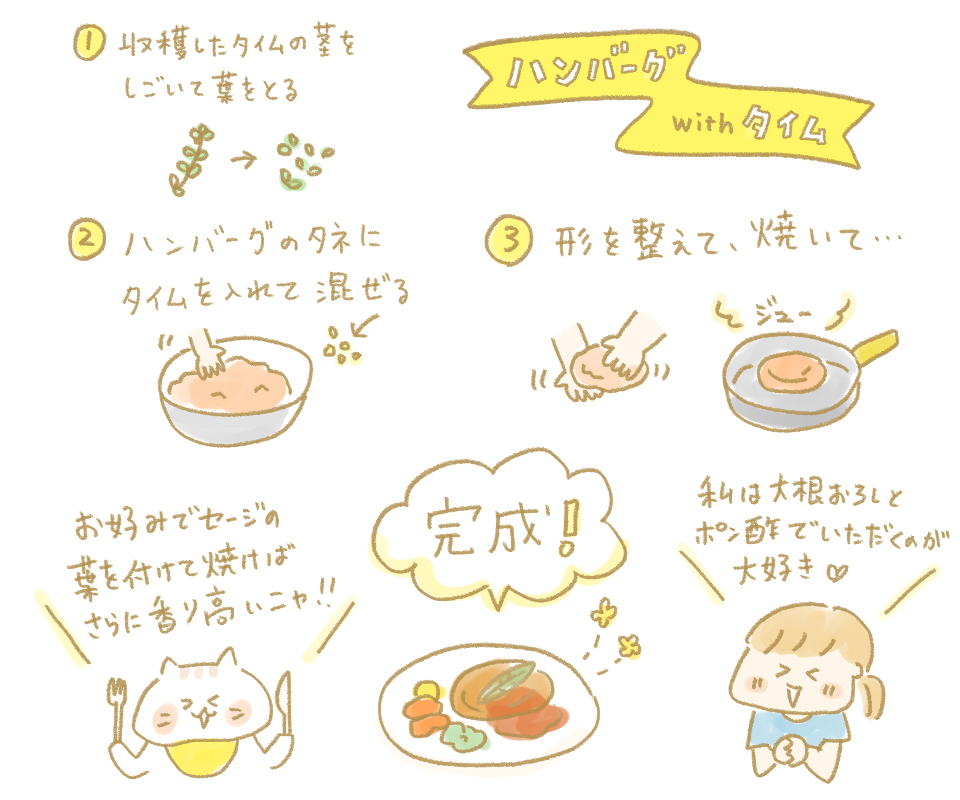 ハンバーグ
with タイム
1 収穫したタイムの茎を
しごいて葉をとる
2 ハンバーグのタネに
タイムを入れて 混ぜる
3 形を整えて、焼いて…
ジュー
完成!
お好みでセージの
葉を付けて焼けば
さらに香り高いニャ!!
私は大根おろしと
ポン酢でいただくのが
大好き♡